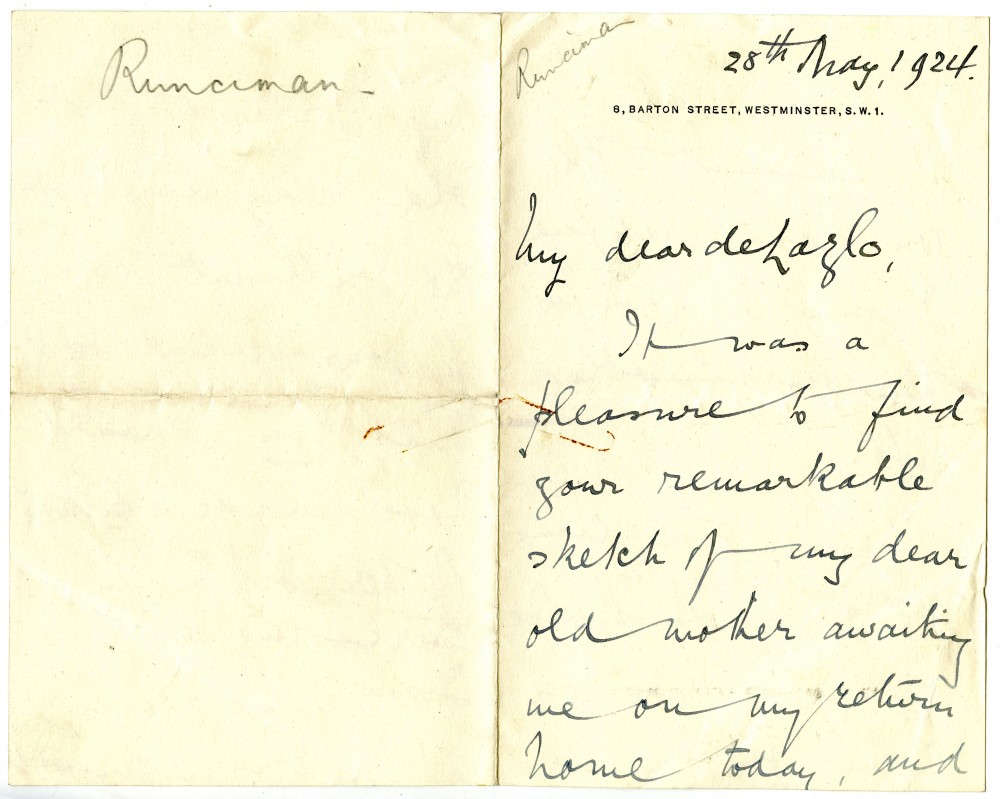 Runciman -
Runciman
28th May, 1924.
8, BARTON STREET, WESTMINSTER, S.W.1.
My dear de Lazlo,
It was a
pleasure to find
your remarkable
sketch of my dear
old mother awaiting
me on my return
home today, and